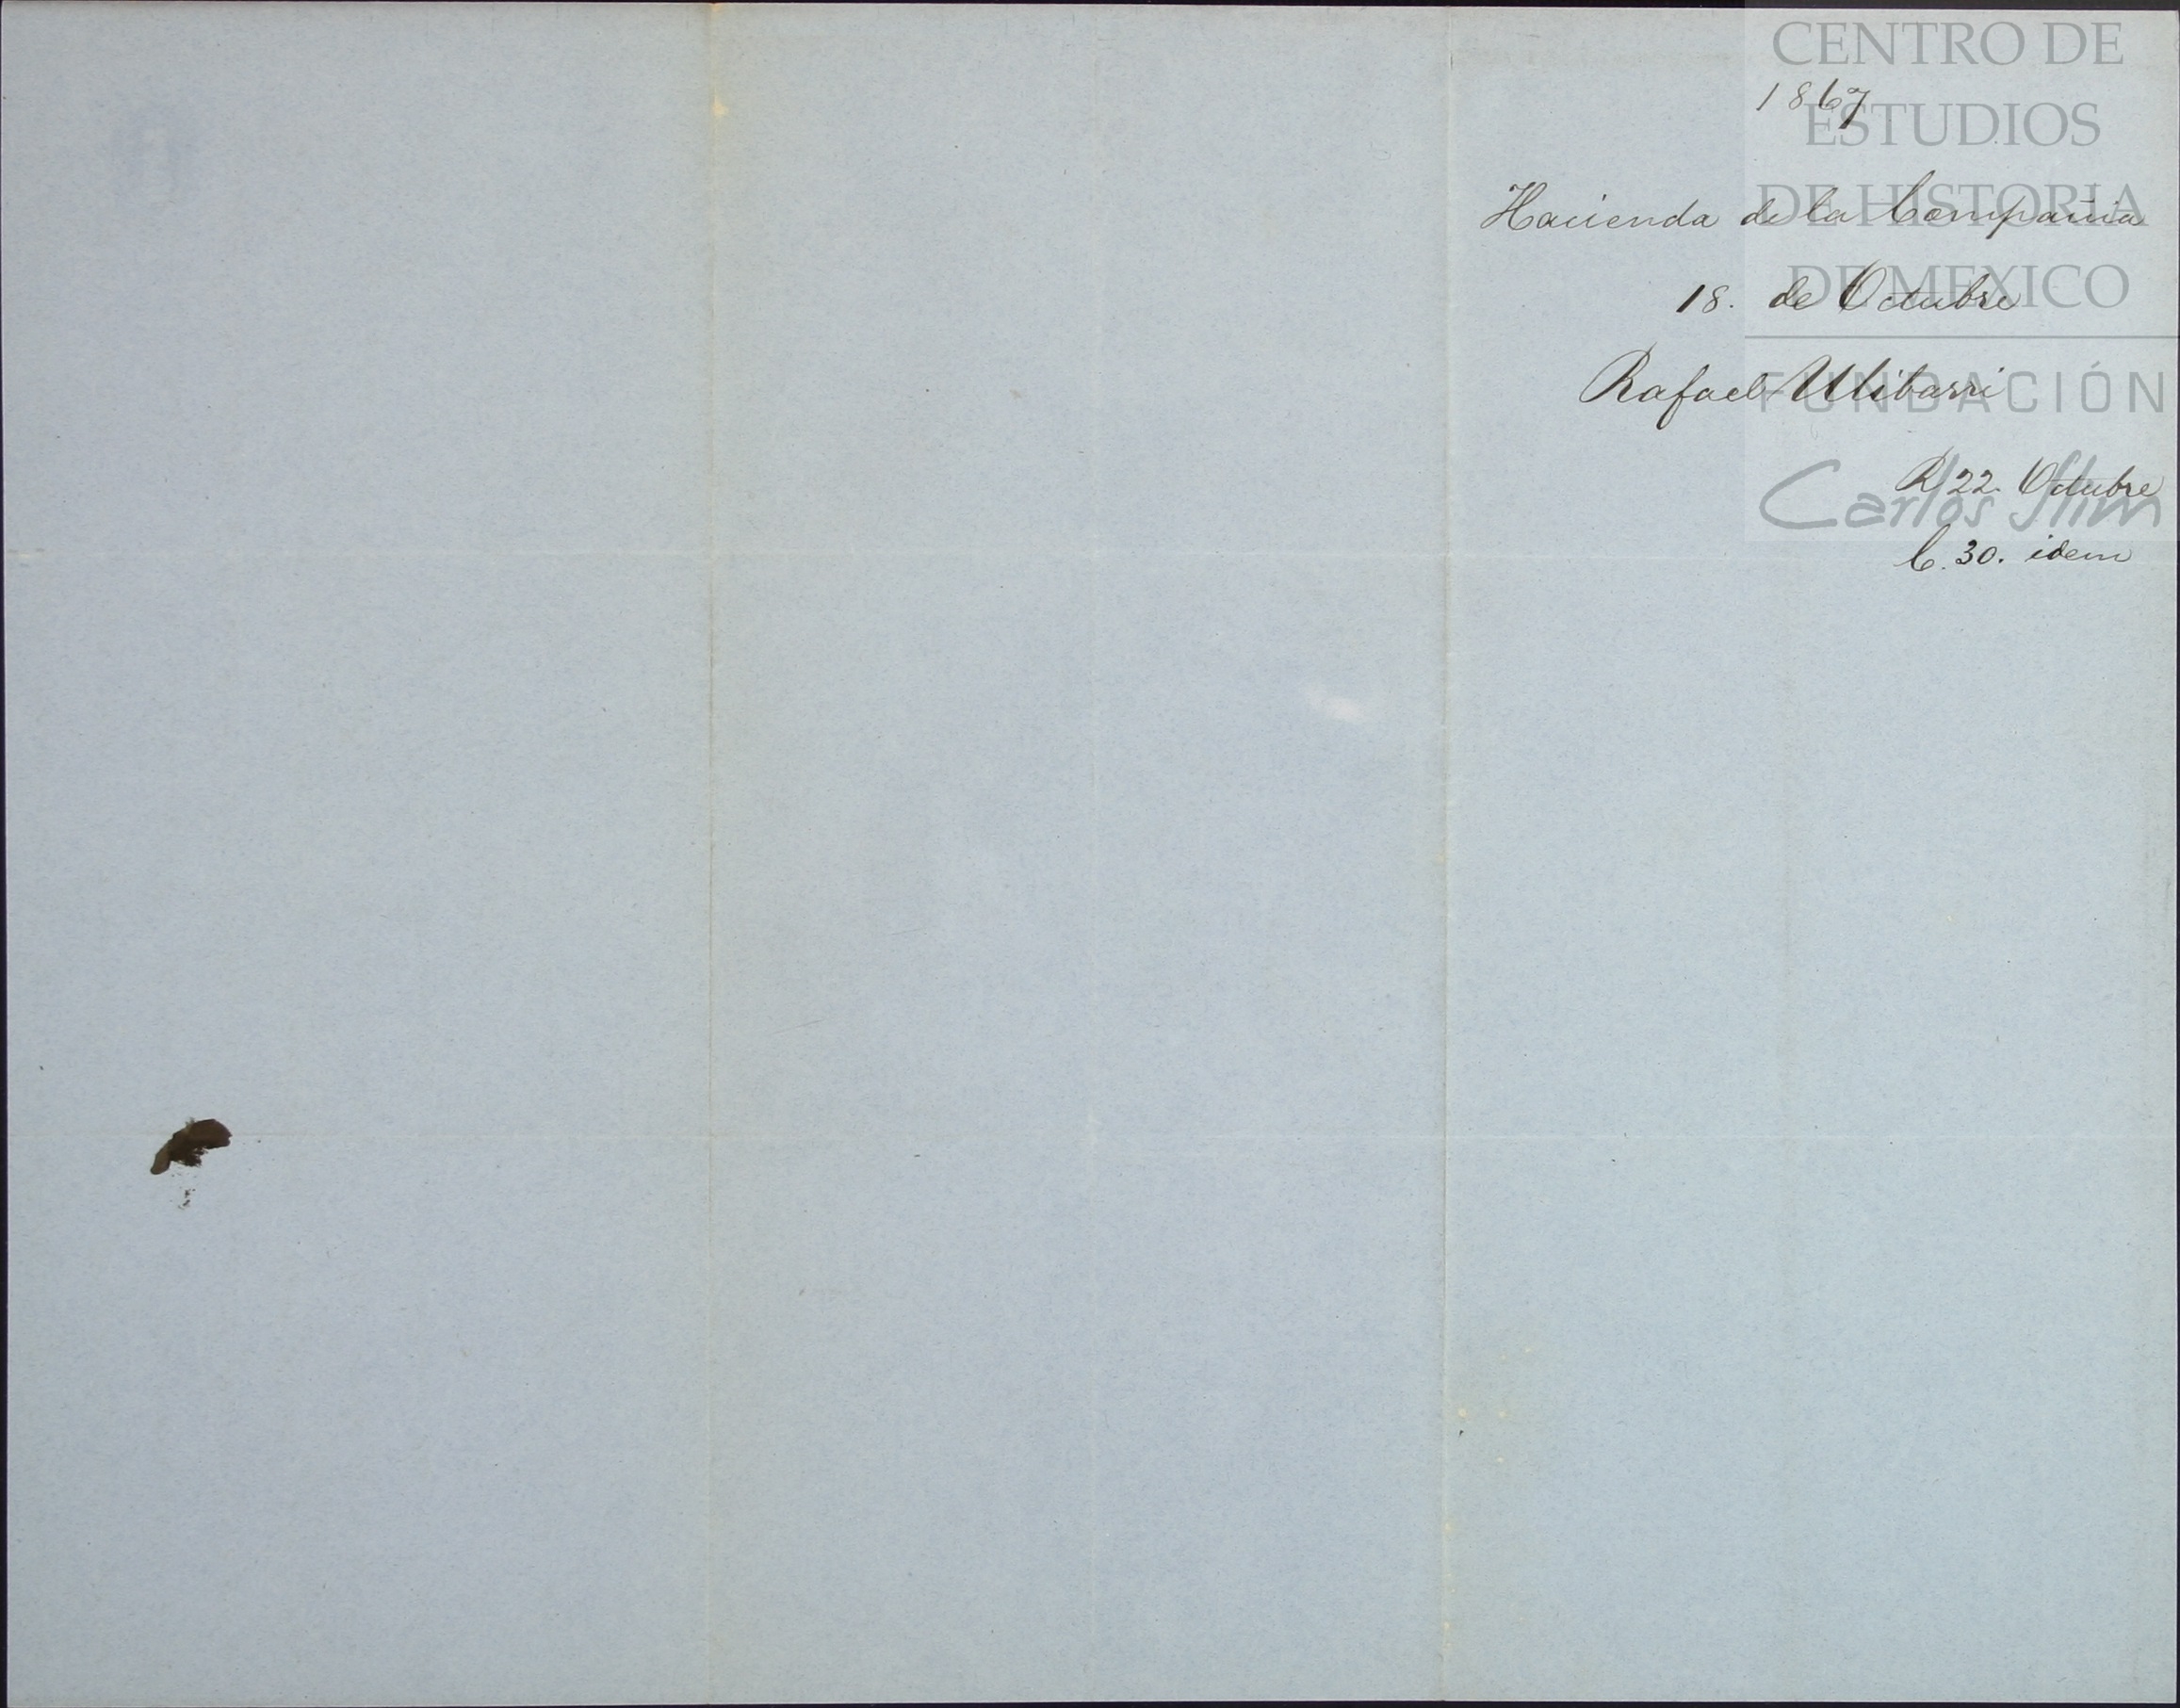 CENTRO DE
ESTUDIOS
DE HISTORIA
DE MEXICO
FUNDACIÓN
Carlos Slim
1867
Hacienda de la Compañia
18. de Octubre
Rafael Ulibarri
R 22. Octubre
C. 30. idem